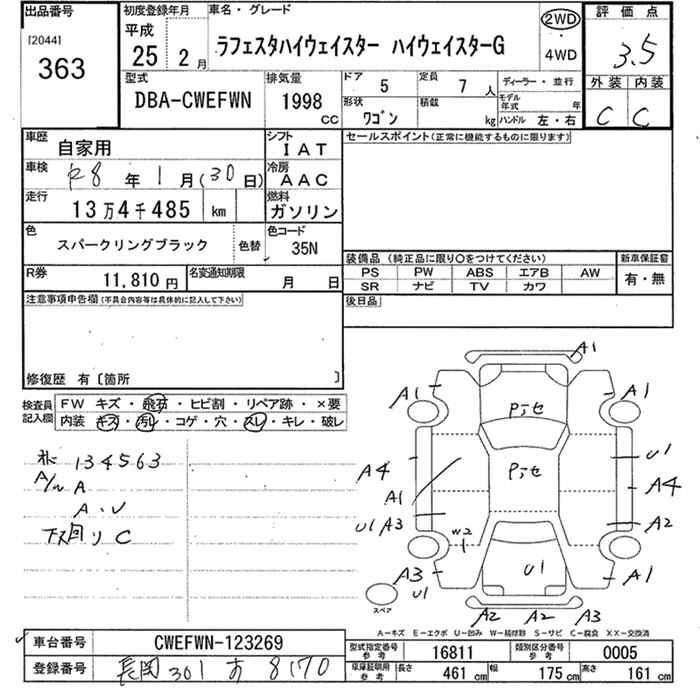 出品番号
[2044]
363
初度登録年月
平成
25 2 月
車名・グレード
ラフェスタハイウェイスター ハイウェイスターG
2WD
・
4WD
評価点
3.5
外装 内装
C C
型式
DBA-CWEFWN
排気量
1998
cc
ドア 5
定員 7 人
形状 ワゴン
積載 kg
ディーラー・並行
モデル年式 年
ハンドル 左・右
車歴 自家用
シフト IAT
車検 R8 年 1 月(30 日)
冷房 AAC
走行 13万4千485 km
燃料 ガソリン
色 スパークリングブラック 色替
色コード 35N
R券 11,810 円
名変通知期限 月 日
セールスポイント(正常に機能するものに限ります)
装備品(純正品に限り○をつけてください)
PS PW ABS エアB AW
SR ナビ TV カワ
新車保証書
有・無
後日品
注意事項申告欄(不具合内容等は具体的に記入して下さい)
修復歴 有〔箇所 〕
検査員記入欄
FW キズ・飛石・ヒビ割・リペア跡・×要
内装 キズ・汚レ・コゲ・穴・スレ・キレ・破レ
134563
A/w A
A.U
下回り C
A1
A1 A1
Pテセ
U1
A4 Pテセ A4
A1
U1 A3 A2
W2
A3 U1 A1
U1
スペア
A2 A2 A3
A-キズ E-エクボ U-凹み W-補修跡 S-サビ C-腐食 XX-交換済
車台番号 CWEFWN-123269
登録番号 長岡 301 す 8170
型式指定番号 参考 16811
類別区分番号 参考 0005
車庫証明用 参考 長さ 461 cm 幅 175 cm 高さ 161 cm